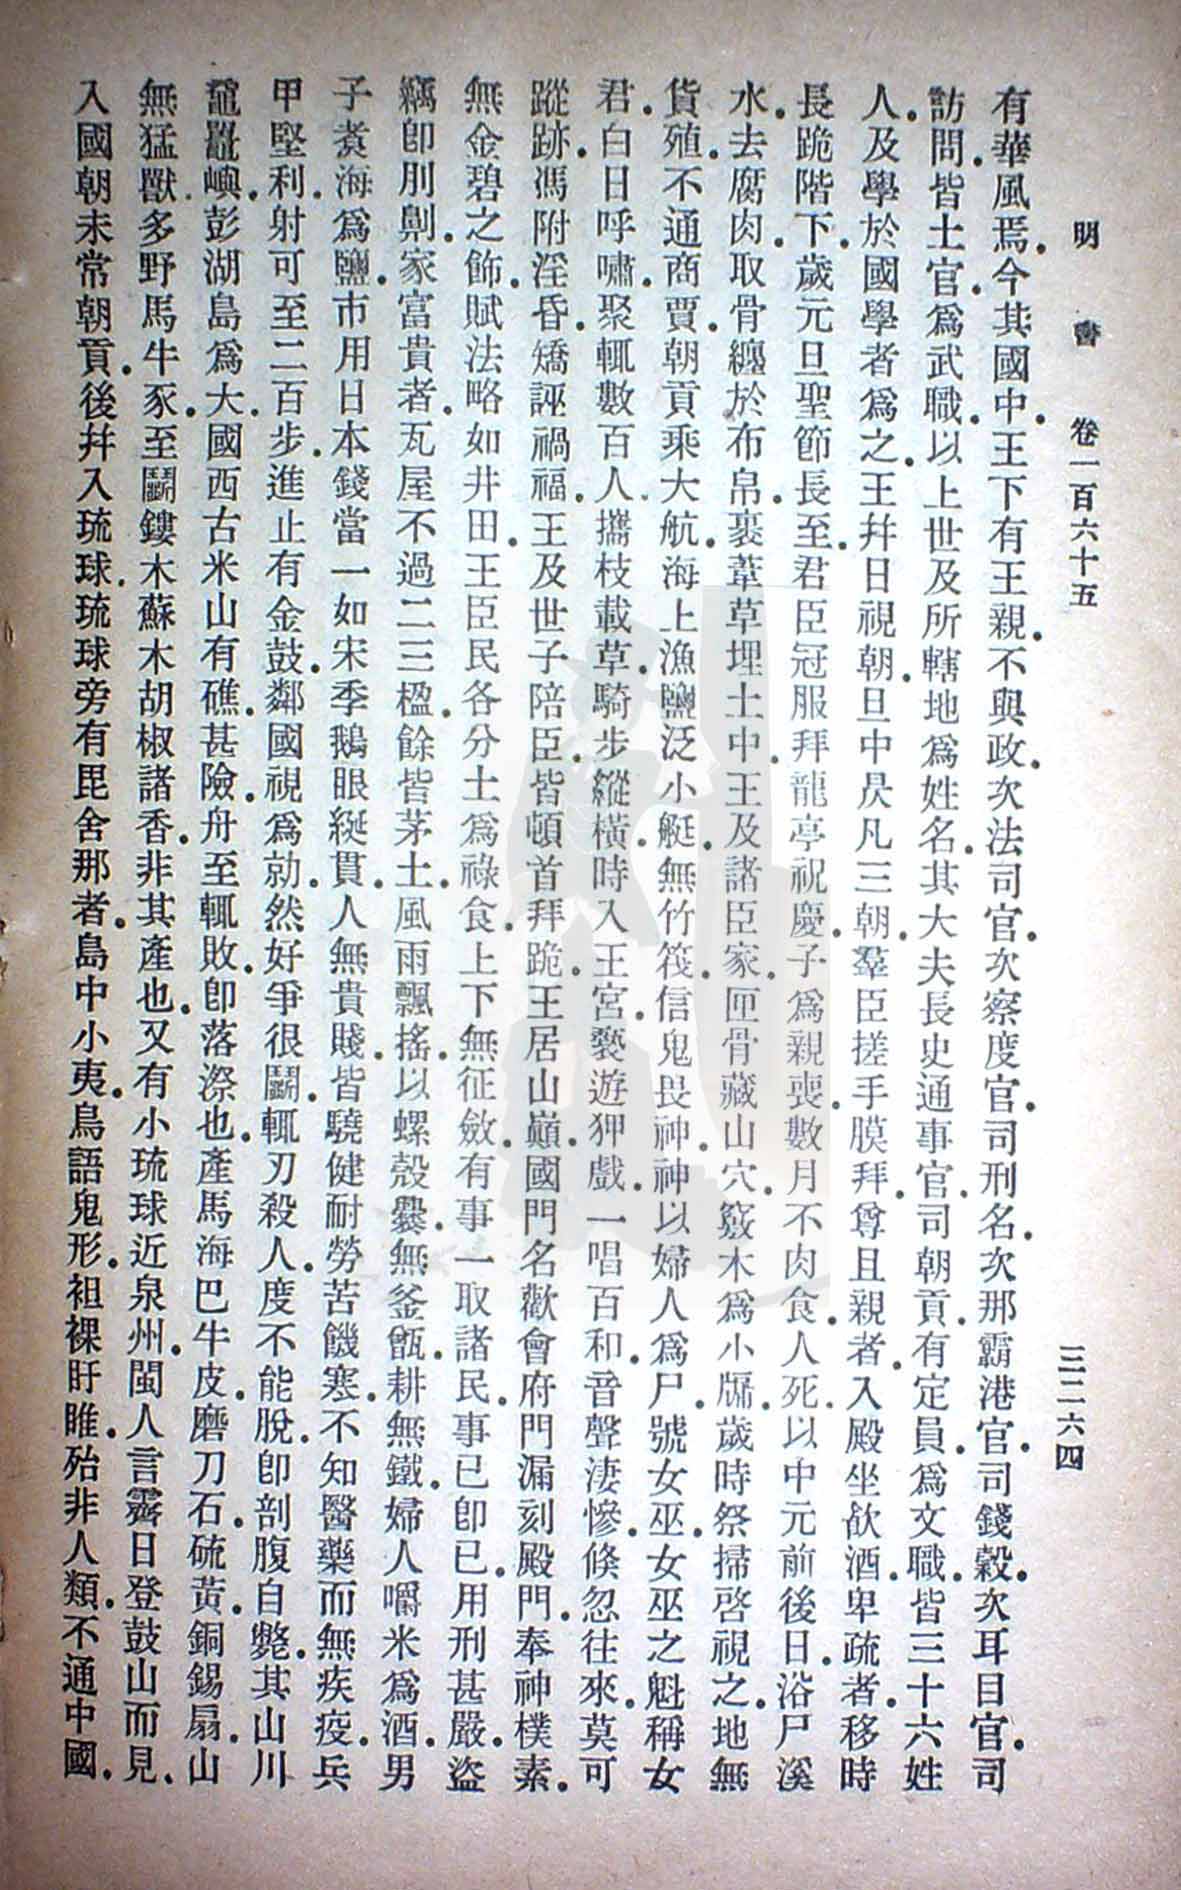 明書　卷一百六十五　三二六四
有華風焉。今其國中。王下有王親。不與政。次法司官。次察度官。司刑名。次那霸港官。司錢穀。次耳目官。司
訪問。皆土官。爲武職。以上世及所轄地爲姓名。其大夫長史通事官。司朝貢。有定員。爲文職。皆三十六姓
人。及學於國學者爲之。王幷日視朝。旦中昃凡三朝。羣臣搓手膜拜。尊且親者。入殿坐飲酒。卑疏者。移時
長跪階下。歲元旦聖節長至。君臣冠服拜龍亭祝慶。子爲親喪。數月不肉食。人死。以中元前後日。浴尸溪
水。去腐肉。取骨纏於布帛。裹葦草埋土中。王及諸臣家。匣骨藏山穴。竅木爲小牖。歲時祭掃啓視之。地無
貨殖。不通商賈。朝貢乘大航。海上漁鹽泛小艇。無竹筏。信鬼畏神。神以婦人爲尸。號女巫。女巫之魁稱女
君。白日呼嘯。聚輒數百人。攜枝載草。騎步縱橫。時入王宮。褻遊狎戲。一唱百和。音聲淒慘。倏忽往來。莫可
蹤跡。馮附淫昏。矯誣禍福。王及世子陪臣。皆頓首拜跪。王居山巔。國門名歡會。府門漏刻。殿門。奉神樸素。
無金碧之飾。賦法略如井田。王臣民各分土爲祿食。上下無征斂。有事一取諸民。事已卽已。用刑甚嚴。盜
竊卽刖劓。家富貴者。瓦屋不過二三楹。餘皆茅土。風雨飄搖。以螺殼爨。無釜甑。耕無鐵。婦人嚼米爲酒。男
子煑海爲鹽。市用日本錢。當一如宋季鵝眼綖貫。人無貴賤。皆驍健耐勞苦饑寒。不知醫藥而無疾疫。兵
甲堅利。射可至二百步。進止有金鼓。鄰國視爲勍。然好爭很鬬。輒刃殺人。度不能脫。卽剖腹自斃。其山川
黿鼊嶼。彭湖島爲大。國西古米山有礁。甚險。舟至輒敗。卽落漈也。產馬海巴牛皮。磨刀石。硫黃。銅錫扇。山
無猛獸。多野馬牛豕。至鬬鏤木蘇木胡椒諸香。非其產也。又有小琉球近泉州。閩人言霽日登鼓山而見。
入國朝未常朝貢。後幷入琉球。琉球旁有毘舍那者。島中小夷。鳥語鬼形。袒裸盱睢。殆非人類。不通中國。